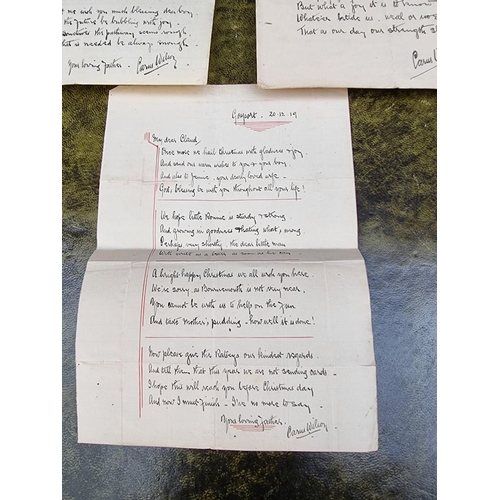 we wish you much blessing dear boy.
the future be bubbling with joy.
the pathway seems rough
is needed be always enough
Your loving Father. Carus Wilson
But what a joy it is to know
Whate'er betide us, weal or woe
That as our day our strength
Carus W
Gosport. 20.12.19
My dear Claud,
Once more we hail Christmas with gladness & joy
And send our warm wishes to you & your boy.
And also to Jennie, your dearly loved wife.
God's blessing be with you throughout all your life!
We hope little Ronnie is sturdy & strong
And growing in goodness & hating what's wrong.
Perhaps very shortly the dear little man
Will write us a letter as soon as he can
A bright happy Christmas we all wish you here.
We're sorry, as Bournemouth is not very near,
You cannot be with us to help on the fun
And taste Mother's pudding - how well it is done!
Now please give the Ratseys our kindest regards
And tell them that this year we are not sending cards -
I hope this will reach you before Christmas day
And now I must finish - I've no more to say
Your loving Father.
Carus Wilson